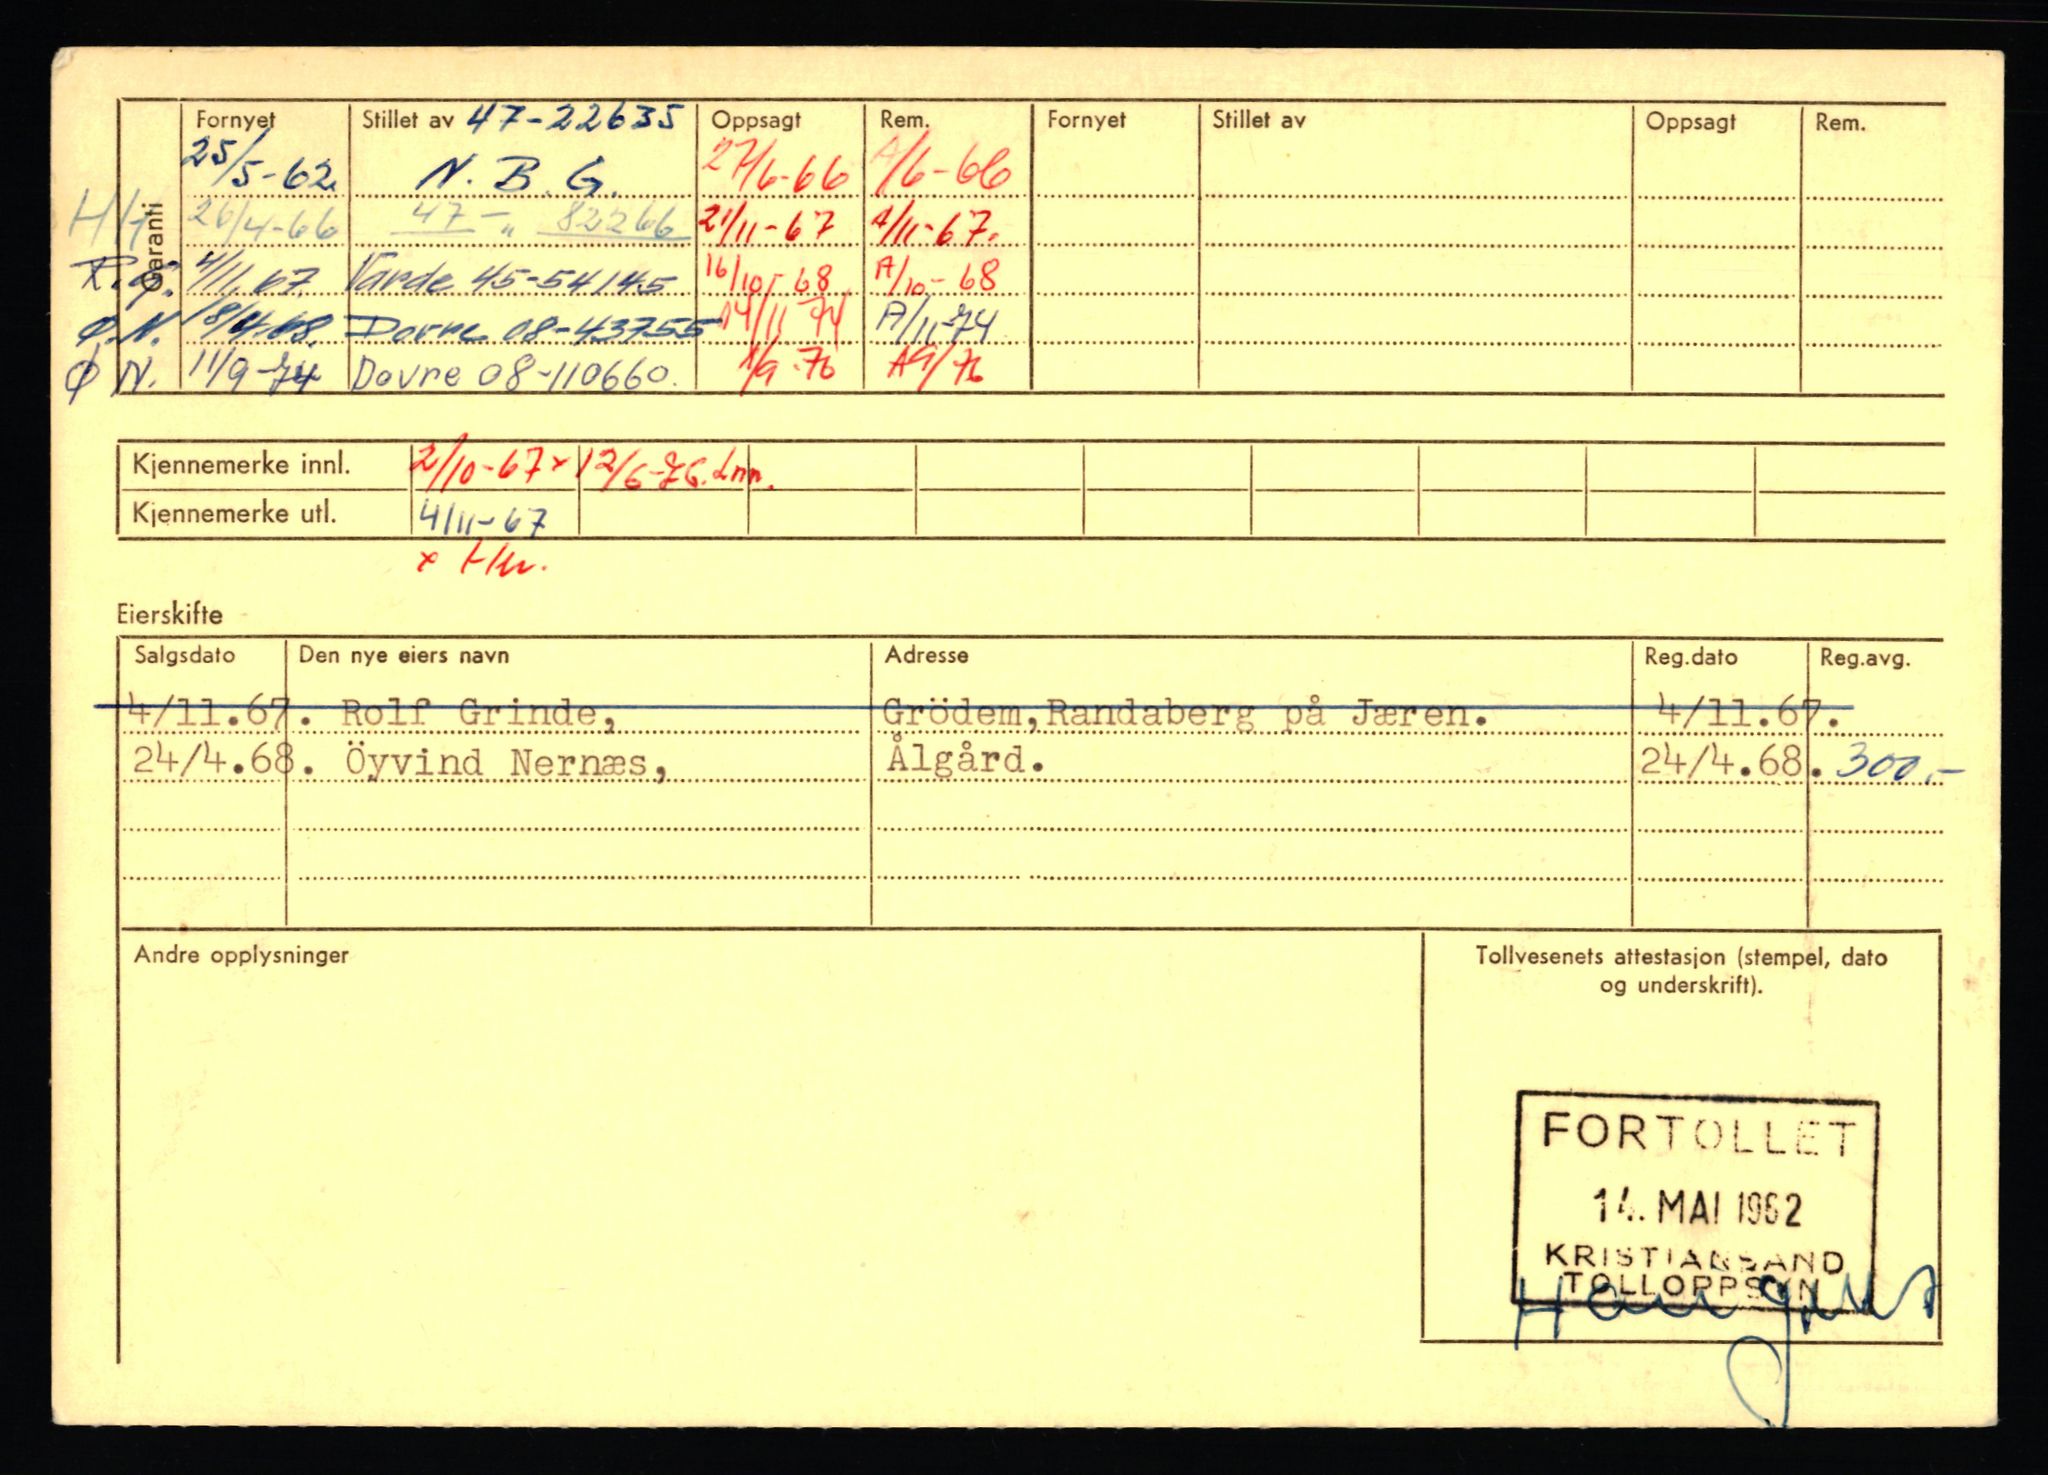 Garanti
Fornyet Stillet av 47-22635 Oppsagt Rem. Fornyet Stillet av Oppsagt Rem.
25/5-62. N. B. G. 27/6-66 A/6-66
26/4-66 47 - „ 82266 21/11-67 A/11-67.
R.G. 4/11.67. Varde 45-54145 16/10-68 A/10-68
Ø.N. 18/4.68. Dovre 08-43755 14/11 74 A/11-74
Ø N. 11/9-74 Dovre 08-110660. 1/9-76 A9/76
Kjennemerke innl. 2/10-67 x 12/6-76. Inn.
Kjennemerke utl. 4/11-67
x
Eierskifte
Salgsdato Den nye eiers navn Adresse Reg.dato Reg.avg.
4/11.67. Rolf Grinde, Grödem,Randaberg på Jæren. 4/11.67.
24/4.68. Öyvind Nernæs, Ålgård. 24/4.68. 300.-
Andre opplysninger
Tollvesenets attestasjon (stempel, dato
og underskrift).
FORTOLLET
14. MAI 1962
KRISTIANSAND
TOLLOPPSYN